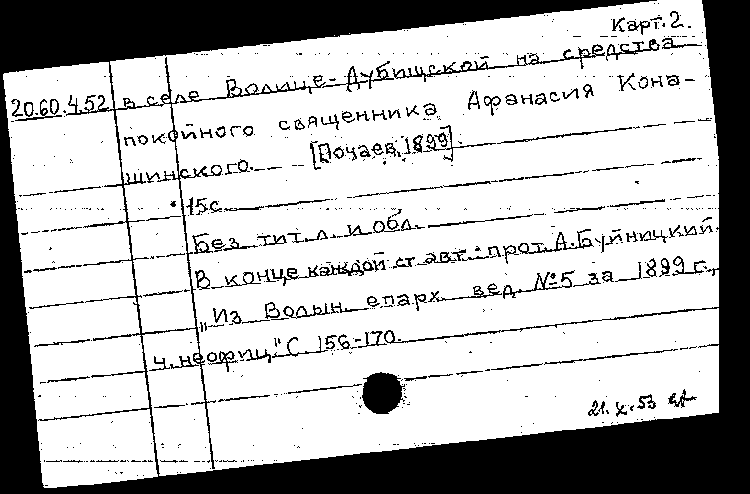 Карт. 2.
20.60.4.52 в селе Волице-Дубищской на средства
покойного священника Афанасия Кона-
шинского. [Почаев, 1899].
15с.
Без тит. л. и обл.
В конце каждой ст. авт.: прот. А. Буйницкий.
„Из Волын. епарх. вед. №5 за 1899 г.,
ч. неофиц." С. 156-170.
21.X.53